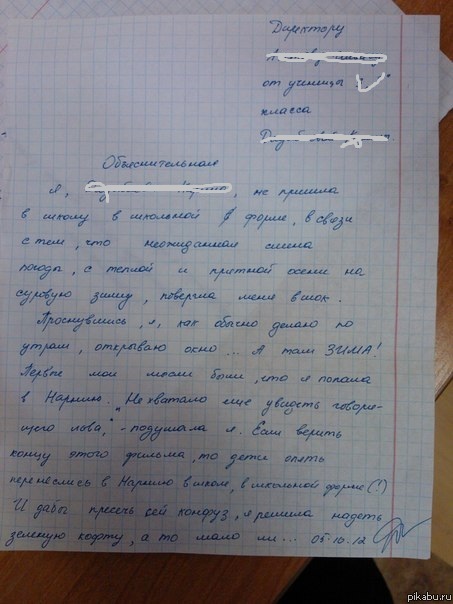 Директору
от ученицы " "
класса
Объяснительная
Я, , не пришла
в школу в школьной форме, в связи
с тем, что неожиданная смена
погоды, с теплой и приятной осени на
суровую зиму, повергла меня в шок.
Проснувшись, я, как обычно делаю по
утрам, открываю окно... А там ЗИМА!
Первые мои мысли были, что я попала
в Нарнию. "Не хватало еще увидеть говоря-
щего льва," - подумала я. Если верить
концу этого фильма, то дети опять
перенеслись в Нарнию в школе, в школьной форме(!)
И дабы пресечь сей конфуз, я решила надеть
зеленую кофту, а то мало ли... 05.10.12
pikabu.ru